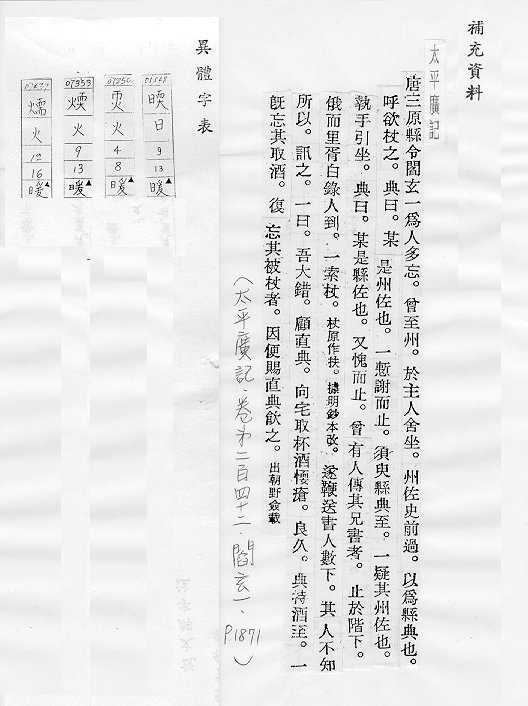 補充資料
太平廣記
唐三原縣令閻玄一爲人多忘。曾至州。於主人舍坐。州佐史前過。以爲縣典也。
呼欲杖之。典曰。某 是州佐也。一慙謝而止。須臾縣典至。一疑其州佐也。
執手引坐。典曰。某是縣佐也。又愧而止。曾 有人傳其兄書者。止於階下。
俄而里胥白錄人到。一索杖。杖原作扶。據明鈔本改。遂鞭送書人數下。其 人不知
所以。訊之。一曰。吾大錯。顧直典。向宅取杯酒㦬瘡。良久。典持酒至。一
旣忘其取酒。復 忘其被杖者。因便賜直典飮之。出朝野僉載
（太平廣記·卷第二百四十二·閻玄一·P.1871）
異體字表
日 9 13 暖▲
火 4 8 暖▲
07353 煗 火 9 13 暖▲
火 12 16 暖▲